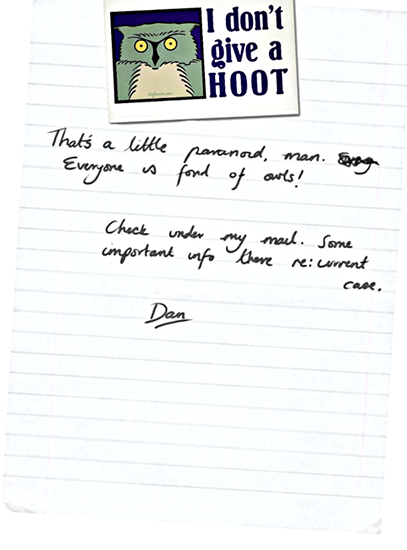 I don't
give a
HOOT
That's a little paranoid, man.
Everyone is fond of owls!
Check under my mail. Some
important info there re: current
case.
Dan